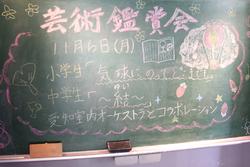 芸術鑑賞会
11月6日(月)
小学生「気球にのってどこまでも」
中学生「〜絵〜」
愛知室内オーケストラとコラボレーション